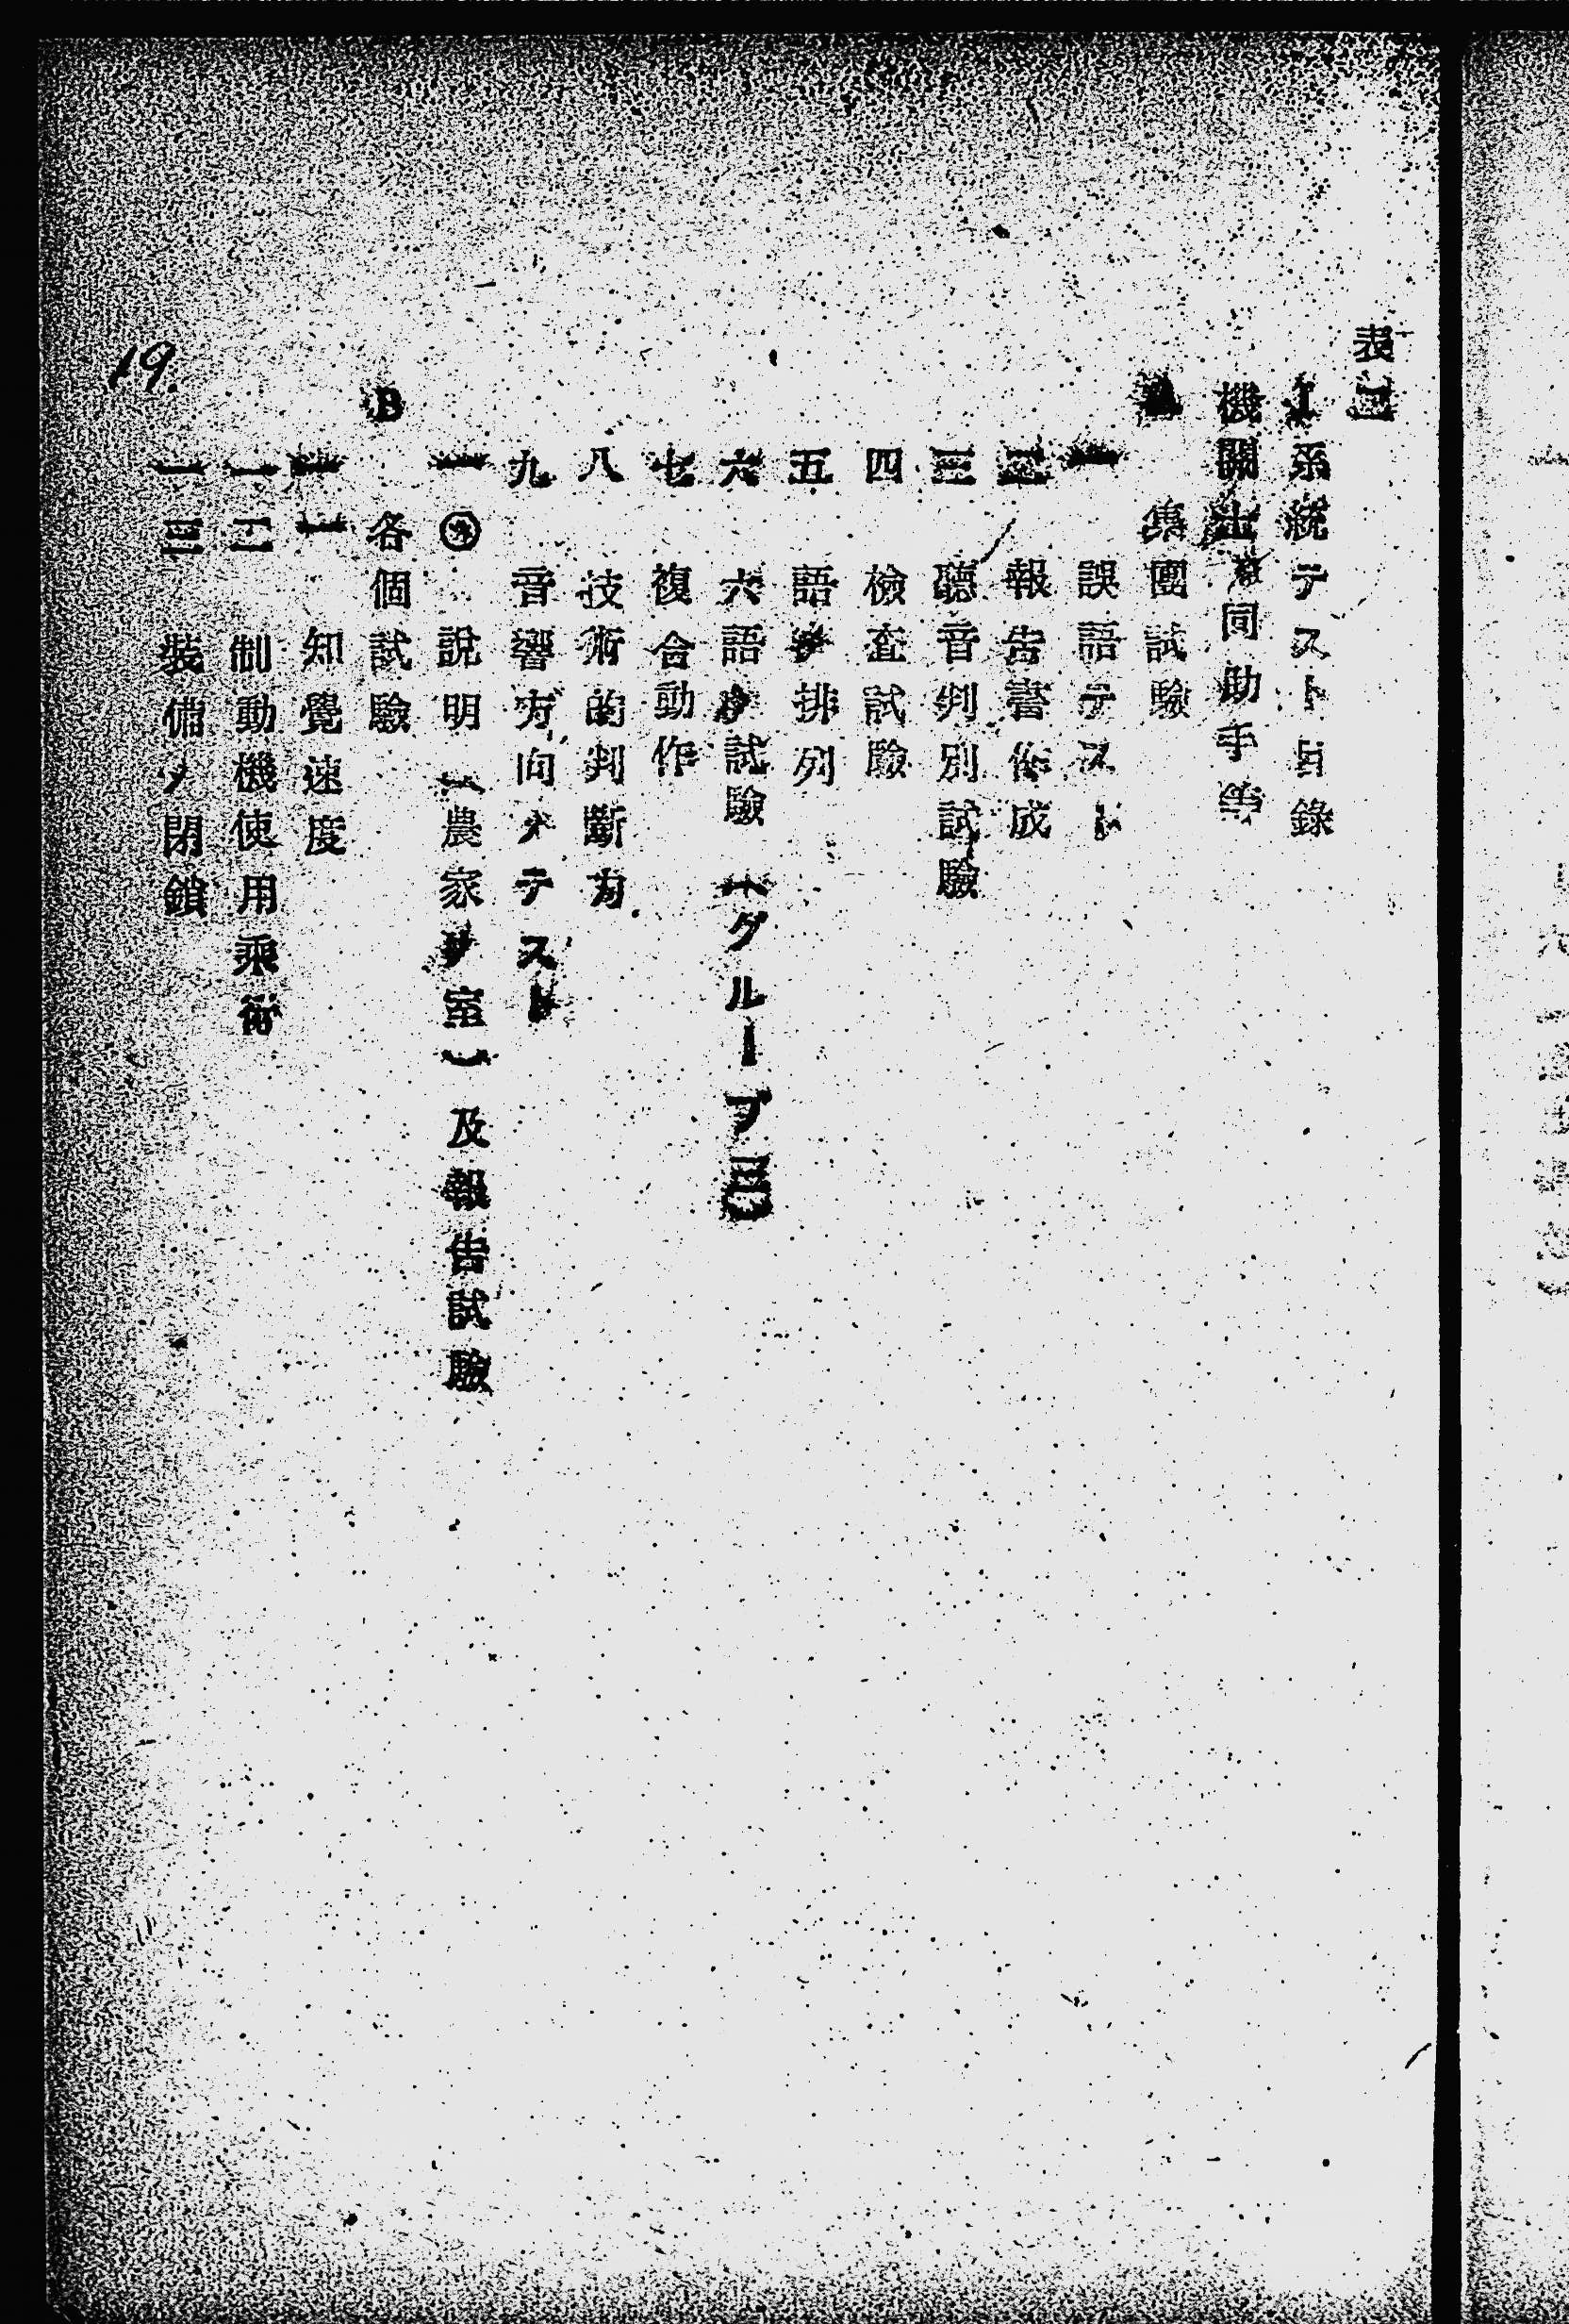 表
I系統テスト目錄
機關士 同助手等
A 集團試驗
一 誤語テスト
二 報告書作成
三 聽音判別試驗
四 檢査試驗
五 語ノ排列
六 六語ノ試驗(グループ
七 複合動作
八 技術的判斷力
九 音響方向ノテスト
一〇 說明(農家ノ室)及報告試驗
B 各個試驗
一一 知覺速度
一二 制動機使用乘術
一三 裝備ノ閉鎖
19.